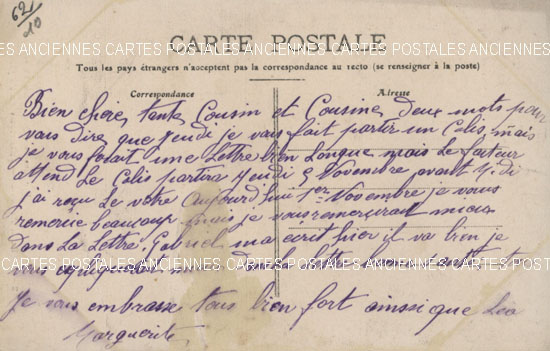 62/10
CARTE POSTALE
CARTES POSTALES ANCIENNES CARTES POSTALES ANCIENNES CARTES POSTALES ANCIENNES
Tous les pays étrangers n'acceptent pas la correspondance au recto (se renseigner à la poste)
Correspondance Adresse
Bien chère tante Cousin et Cousine deux mots pour
vous dire que jeudi je vais fait partir un Colis, mais
je vous ferait une Lettre bien Longue mais le facteur
attend Le Colis partira jeudi 5 Novembre avant Midi
j'ai reçu Le votre aujourd'hui 1er Novembre je vous
remercie beaucoup mais je vous remercirait mieux
dans La Lettre. Gabriel ma ecrit hier il va bien je
CARTES POSTALES ANCIENNES CARTES POSTALES ANCIENNES CARTES POSTALES ANCIENNES
Je vous embrasse tous bien fort ainssi que Léa
Marguerite.